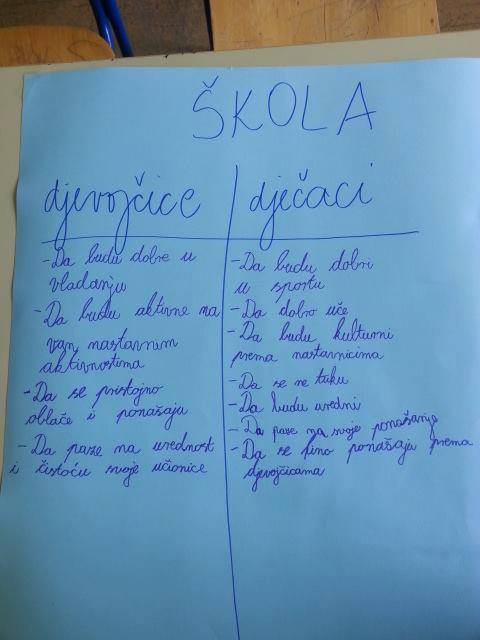 ŠKOLA
djevojčice
-Da budu dobre u
vladanju
-Da budu aktivne na
van nastavnim
aktivnostima
-Da se pristojno
oblače i ponašaju
-Da paze na urednost
i čistoću svoje učionice
dječaci
-Da budu dobri
u sportu
-Da dobro uče
-Da budu kulturni
prema nastavnicima
-Da se ne tuku
-Da budu uredni
-Da paze na svoje ponašanje
-Da se fino ponašaju prema
djevojčicama